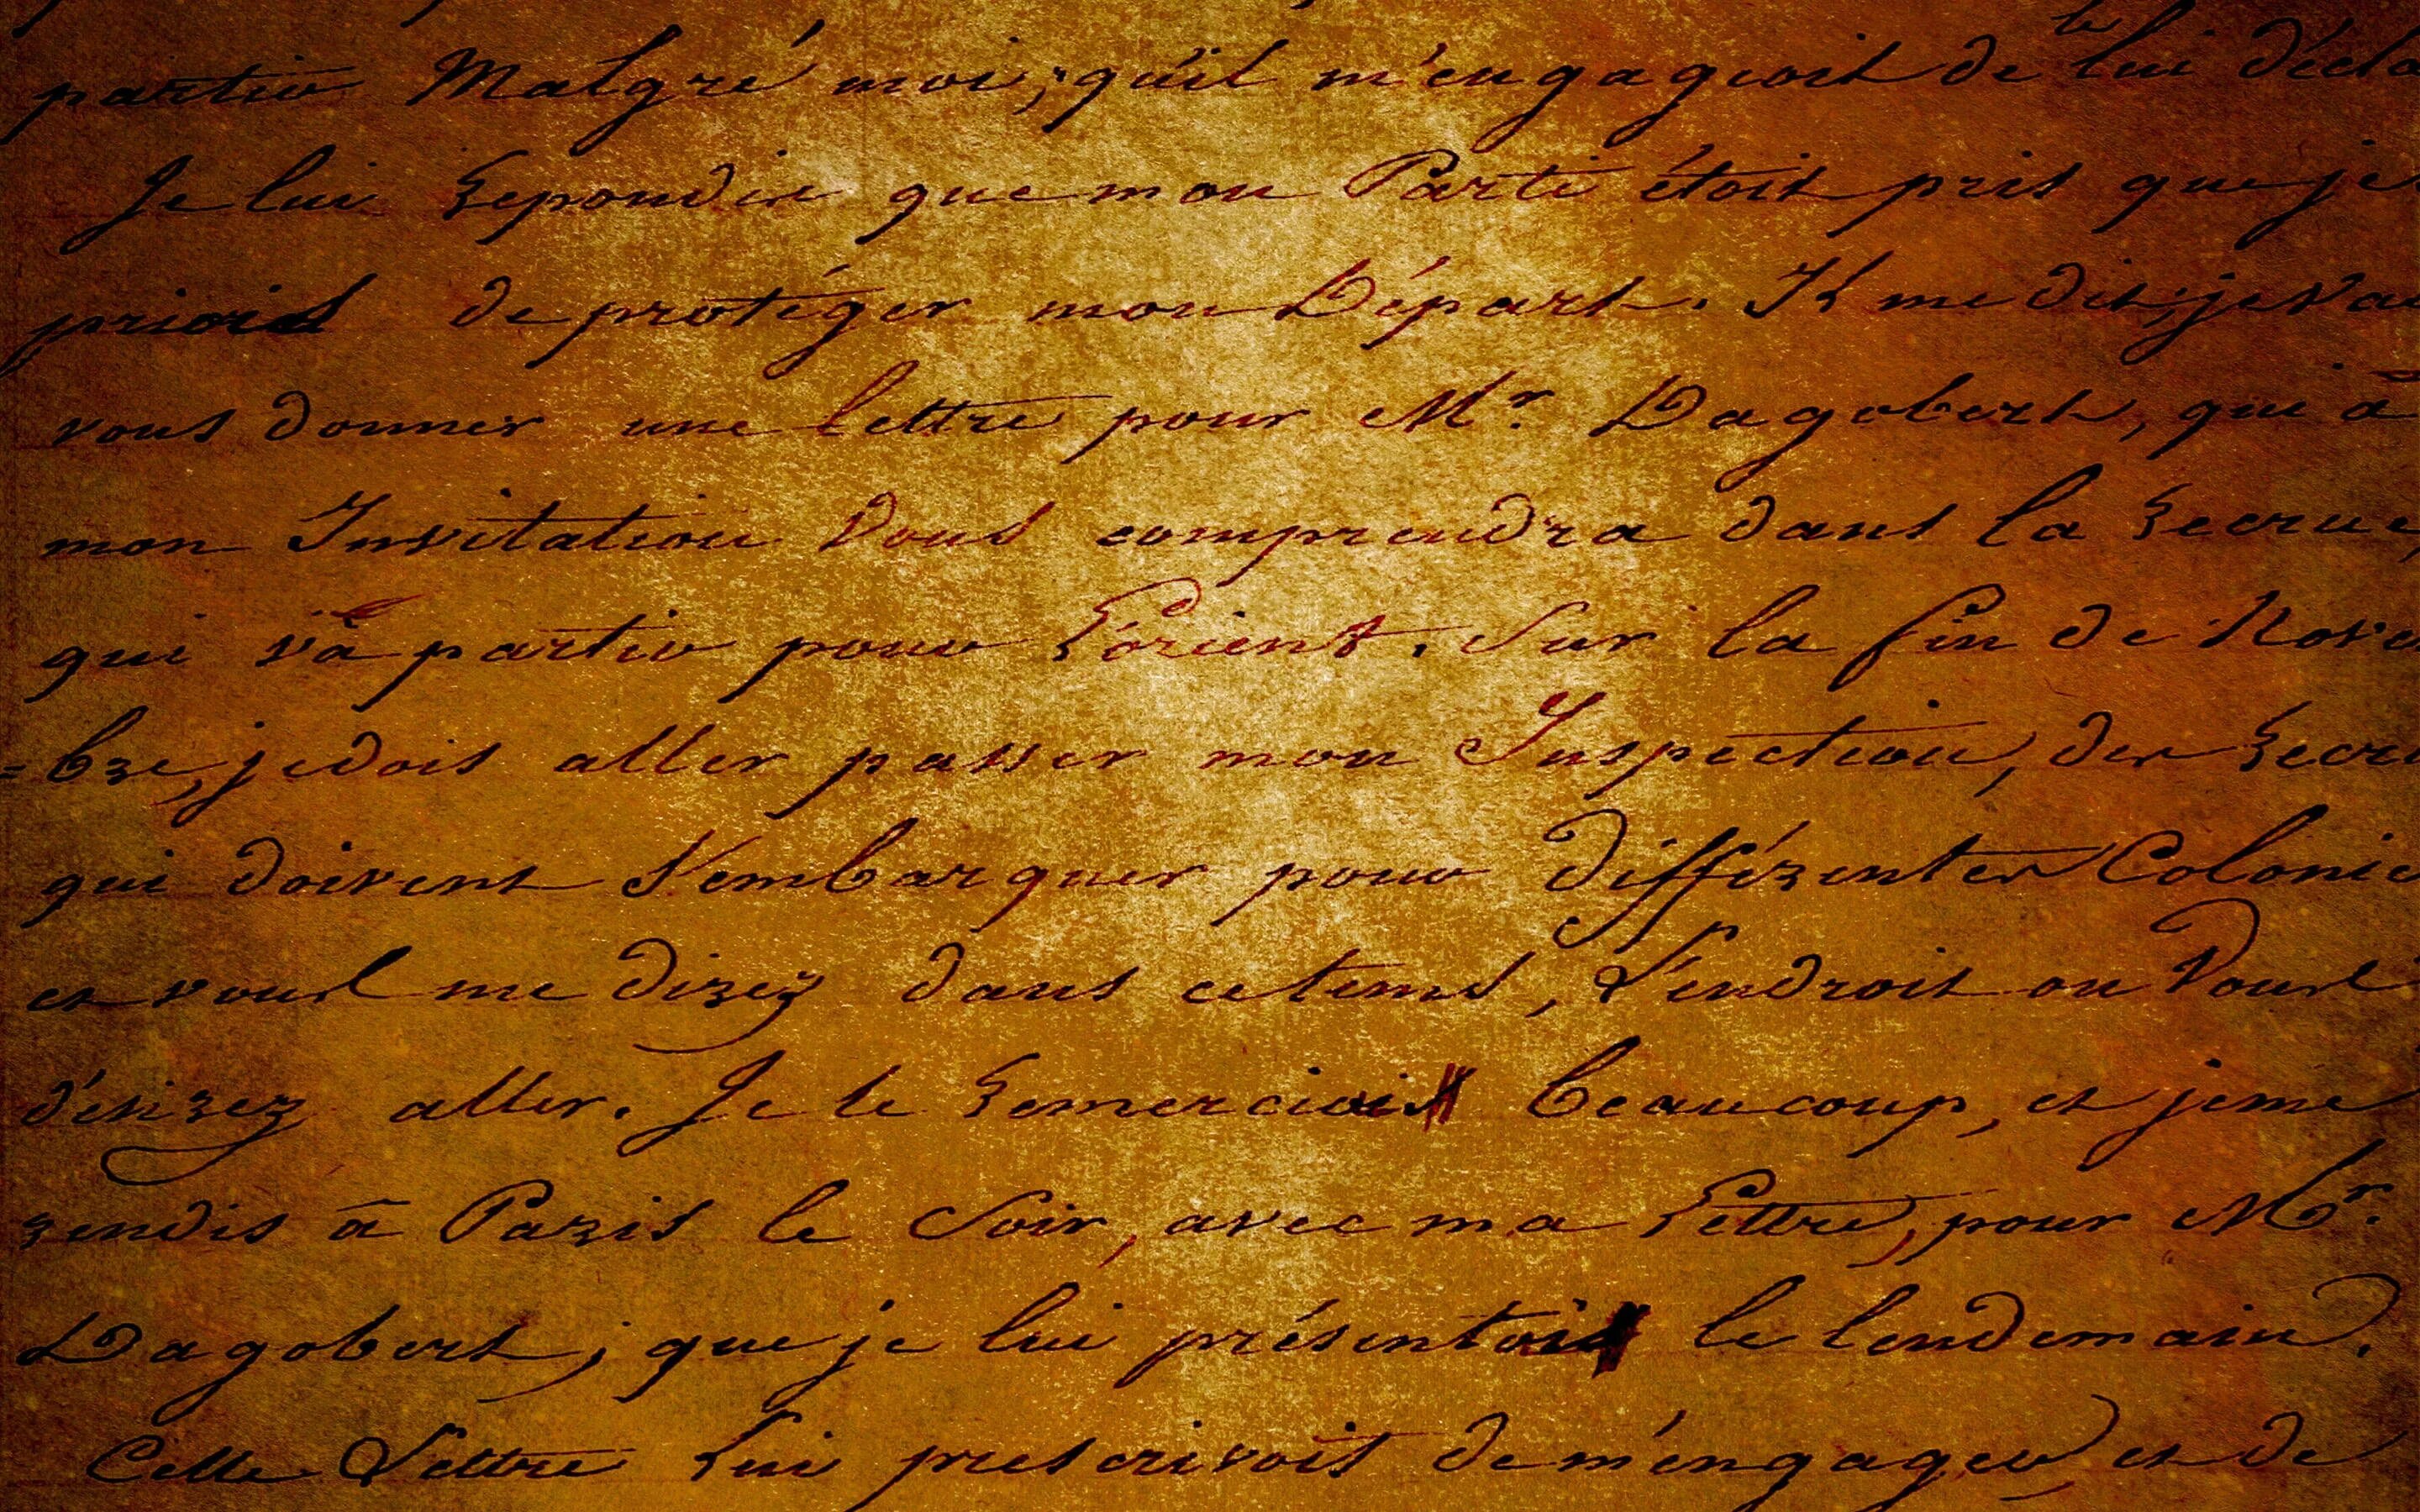 partir Malgré moi; qu'il m'engageoit de le lui décla
Je lui repondis que mon Parti étoit pris que je
priois de protéger mon Départ. Il me dit; je va
vous donner une lettre pour Mr. Dagobert, qui à
mon Invitation Vous comprendra dans la recrue,
qui va partir pour L'orient. Sur la fin de Nove
=bre, je dois aller passer mon Inspection, des recru
qui doivent S'embarquer pour différentes Colonie
et vous me direz dans ce tems, L'endroit ou Vous
désirez aller. Je le remerciai beaucoup, et je me
rendis à Paris le Soir, avec ma Lettre, pour Mr.
Dagobert, que je lui présentai le lendemain.
Cette Lettre Lui prescrivoit de m'engager et de